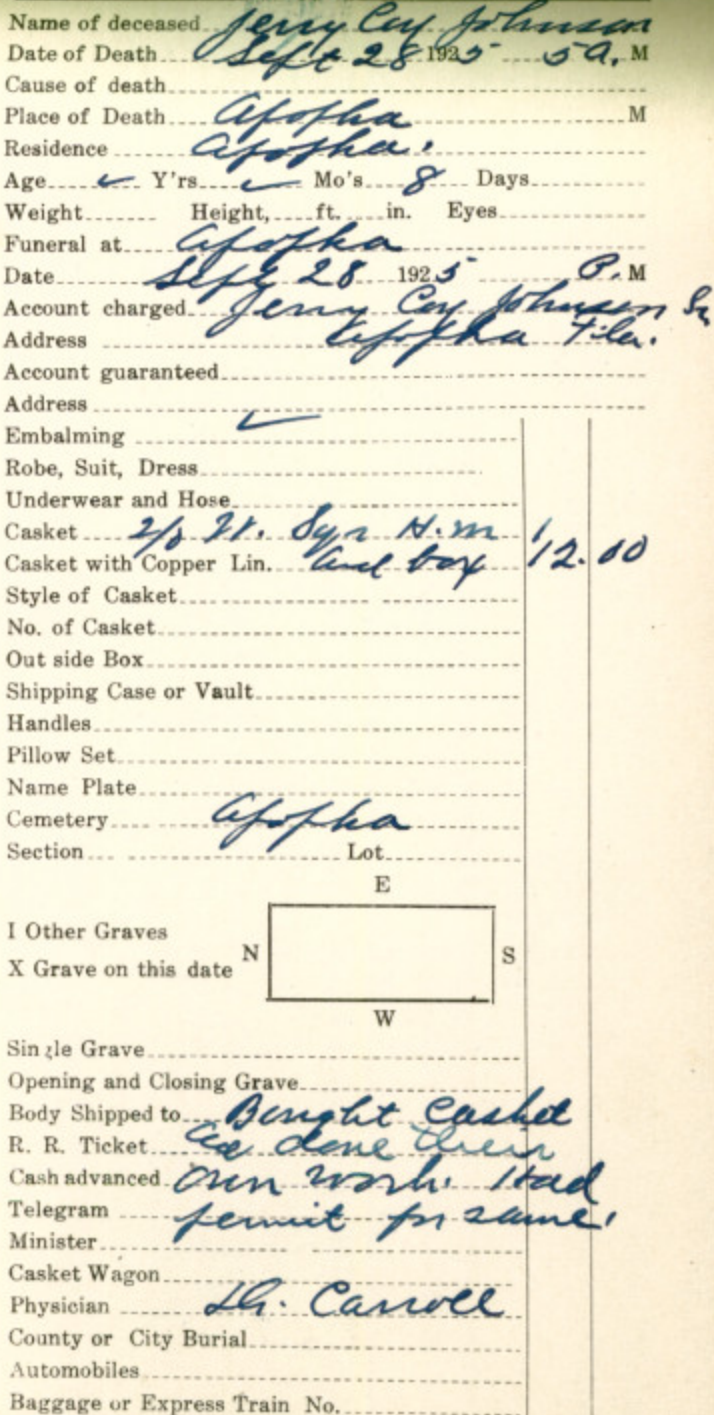 Name of deceased Jerry Coy Johnson
Date of Death Sept 28 1925 5 A. M
Cause of death
Place of Death Apopka M
Residence Apopka.
Age Y'rs. Mo's 8 Days
Weight Height, ft. in. Eyes
Funeral at Apopka
Date Sept 28 1925 P. M
Account charged Jerry Coy Johnson Sr
Address Apopka Fla.
Account guaranteed
Address
Embalming
Robe, Suit, Dress
Underwear and Hose
Casket 2/0 W. Sqr H.m
Casket with Copper Lin. and box 12.00
Style of Casket
No. of Casket
Out side Box
Shipping Case or Vault
Handles
Pillow Set
Name Plate
Cemetery Apopka
Section Lot
E
I Other Graves
N S
X Grave on this date
W
Single Grave
Opening and Closing Grave
Body Shipped to Bought Casket
R. R. Ticket done their
Cash advanced own work. Had
Telegram permit for same.
Minister
Casket Wagon
Physician Dr. Carroll
County or City Burial
Automobiles
Baggage or Express Train No.